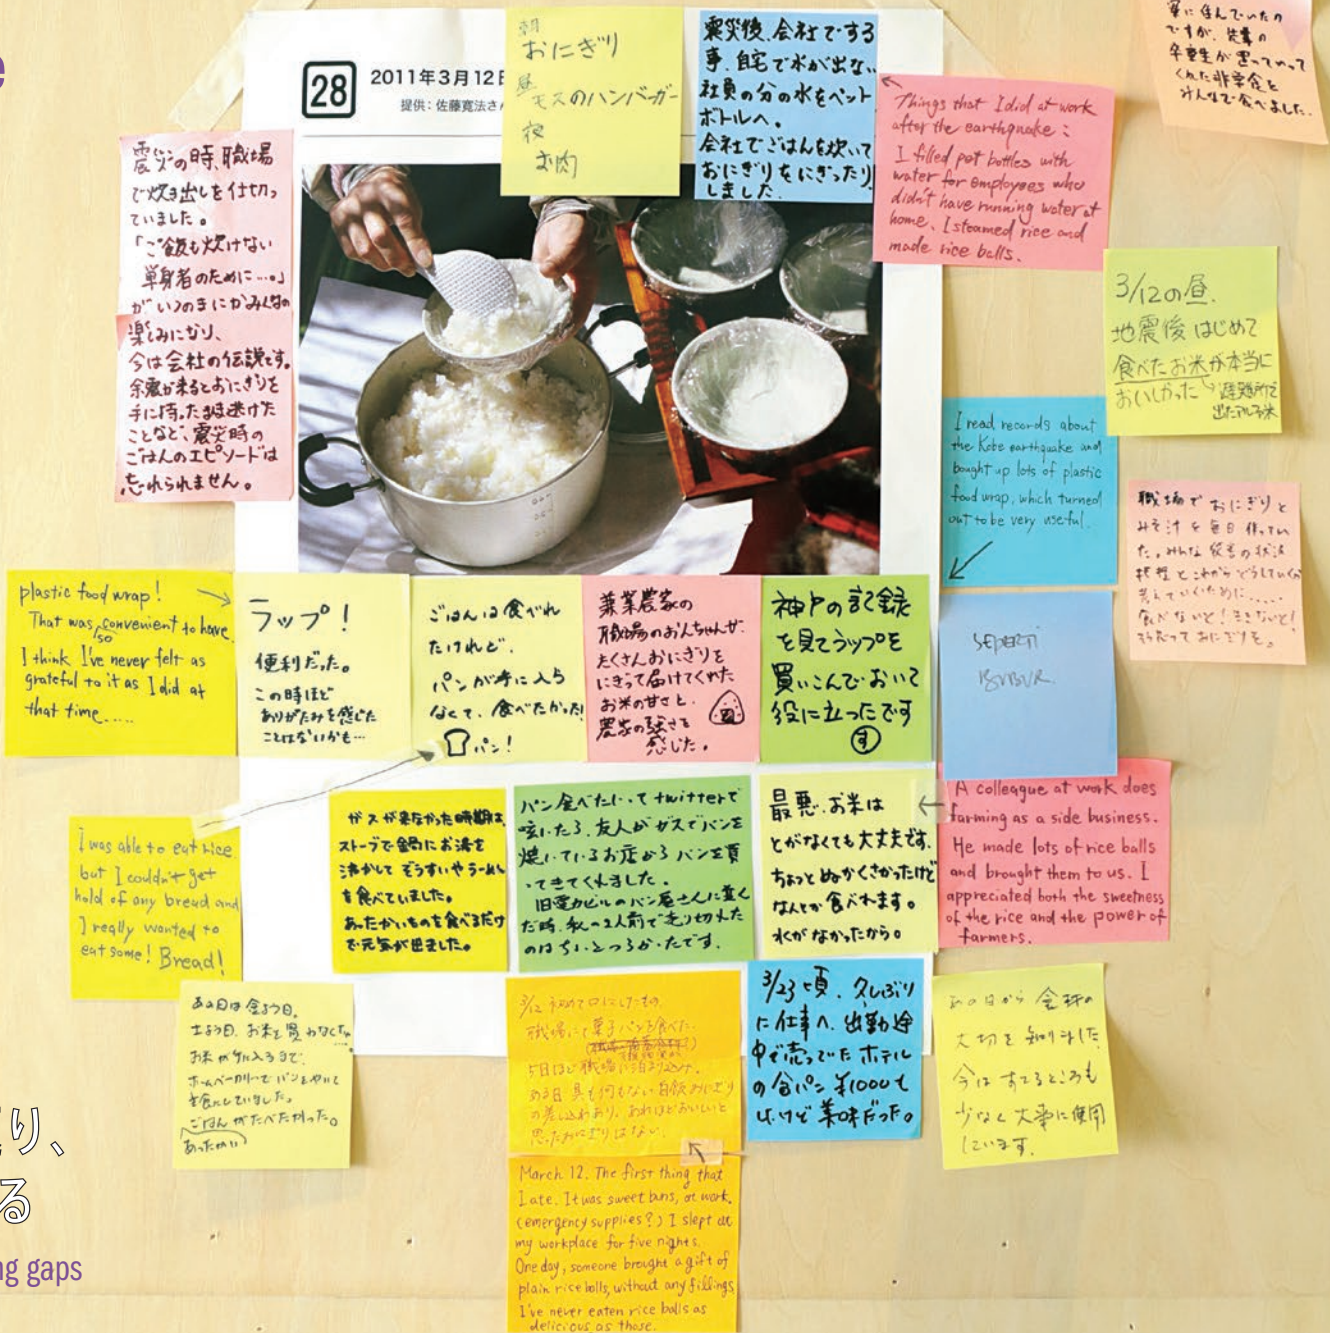 e
28
2011年3月12日
提供：佐藤寛法さん
朝
おにぎり
昼
モスのハンバーガー
夜
お肉
震災後、会社でする
事、自宅で水が出ない
社員の分の水をペット
ボトルへ。
会社でごはんを炊いて
おにぎりをにぎったり
しました。
Things that I did at work
after the earthquake :
I filled pet bottles with
water for employees who
didn't have running water at
home. I steamed rice and
made rice balls.
寮に住んでいたの
ですが、先輩の
卒業生が置いていって
くれた非常食を
みんなで食べました。
震災の時、職場
で炊き出しを仕切っ
ていました。
「ご飯も炊けない
単身者のために…。」
がいつのまにかみんなの
楽しみになり、
今は会社の伝説です。
余震が来るとおにぎりを
手に持ったまま逃げた
ことなど、震災時の
ごはんのエピソードは
忘れられません。
3/12の昼、
地震後はじめて
食べたお米が本当に
おいしかった
避難所で
出たアルファ米
I read records about
the Kobe earthquake and
bought up lots of plastic
food wrap, which turned
out to be very useful.
職場でおにぎりと
みそ汁を毎日作ってい
た。みんな災害の状況
把握とこれからどうしていくか
考えていくために.....
食べないと！生きないと！
plastic food wrap!
That was so convenient to have.
I think I've never felt as
grateful to it as I did at
that time.....
ラップ！
便利だった。
この時ほど
ありがたみを感じた
ことはないかも…
ごはんは食べれ
たけれど、
パンが手に入ら
なくて、食べたかった！
パン！
兼業農家の
職場のおんちゃんが、
たくさんおにぎりを
にぎって届けてくれた
お米の甘さと、
農家の強さを
感じた。
神戸の記録
を見てラップを
買いこんでおいて
役に立ったです
す
SEPERTI
BUBUR.
I was able to eat rice
but I couldn't get
hold of any bread and
I really wanted to
eat some! Bread!
ガスが来なかった時期は、
ストーブで鍋にお湯を
沸かして ぞうすいやラーメン
を食べていました。
あったかいものを食べるだけ
で元気が出ました。
パン食べたいって twitterで
呟いたら、友人がガスでパンを
焼いているお店からパンを買
ってきてくれました。
旧電力ビルのパン屋さんに並ん
だ時、私の2人前で売り切れた
のはちょっとつらかったです。
最悪、お米は
とがなくても大丈夫です。
ちょっとぬかくさかったけど
なんとか食べれます。
水がなかったから。
A colleague at work does
farming as a side business.
He made lots of rice balls
and brought them to us. I
appreciated both the sweetness
of the rice and the power of
farmers.
あの日は金よう日。
土よう日、お米を買わなくちゃ…
お米が手に入るまで、
ホームベーカリーでパンをやいて
主食にしていました。
ごはんがたべたかった。
あったかい
3/12 初めて口にしたもの。
職場にて菓子パンを食べた。
5日ほど職場に泊まり込み。
ある日、具も何もない白飯おにぎり
の差し入れあり、あれほどおいしいと
思ったおにぎりはない。
3/23頃、久しぶり
に仕事へ。出勤途
中で売ってたホテル
の食パン ¥1000も
したけど美味だった。
あの日から 食料の
大切を知りました
今はすてるところも
少なく大事に使用
しています。
March 12. The first thing that
I ate. It was sweet buns, at work.
(emergency supplies?) I slept at
my workplace for five nights.
One day, someone brought a gift of
plain rice balls, without any fillings.
I've never eaten rice balls as
delicious as those.
り、
る
ng gaps